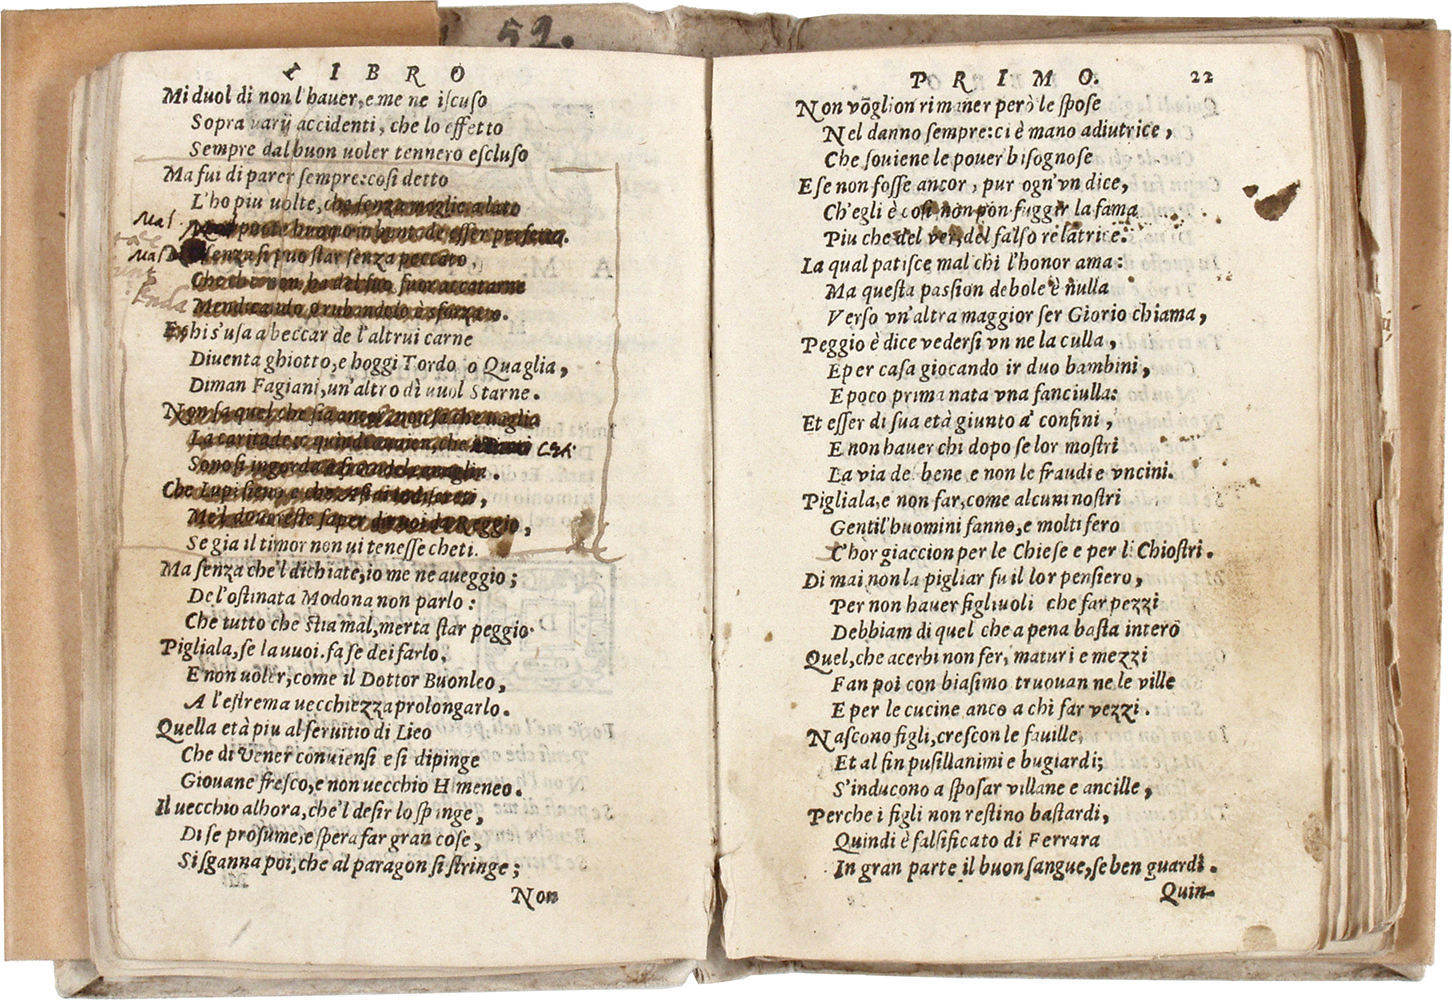 52.
LIBRO
Mi duol di non l'hauer, e me ne iscuso
Sopra uarij accidenti, che lo effetto
Sempre dal buon uoler tennero escluso
Ma fui di parer sempre: cosi detto
L'ho piu uolte, che senza moglie a lato
Mal
Non puote huomo in bonta de esser perfetto.
Mal
Ne senza si puo star senza peccato,
Che chi non ha del suo, fuor accatarne
Mendicando o rubandolo è sforzato.
E chi s'usa a beccar de l'altrui carne
Diuenta ghiotto, e hoggi Tordo o Quaglia,
Diman Fagiani, un'altro dì uuol Starne.
Non sa quel che sia amor, non sa che uaglia
La caritade: e quindi auuien, che i Preti
Sono si ingorda e si crudel canaglia.
Che Lupi sieno e che Asini indiscreti,
Me'l doureste saper dir uoi da Reggio,
Se gia il timor non ui tenesse cheti.
Ma senza che'l dichiate, io me ne aueggio;
De l'ostinata Modona non parlo:
Che tutto che stia mal, merta star peggio.
Pigliala, se la uuoi. fa se dei farlo,
E non uoler, come il Dottor Buonleo,
A l'estrema uecchiezza prolongarlo.
Quella età piu al seruitio di Lieo
Che di Vener conuiensi e si dipinge
Giouane fresco, e non uecchio Himeneo.
Il uecchio alhora, che'l desir lo spinge,
Di se prosume, e spera far gran cose,
Si sganna poi, che al paragon si stringe;
Non
PRIMO. 22
Non voglion rimaner però le spose
Nel danno sempre: ci è mano adiutrice,
Che souiene le pouer bisognose
E se non fosse ancor, pur ogn'vn dice,
Ch'egli è cosi non pon fuggir la fama
Piu che del ver, del falso relatrice.
La qual patisce mal chi l'honor ama:
Ma questa passion debole è nulla
Verso vn'altra maggior ser Giorio chiama,
Peggio è dice vedersi vn ne la culla,
E per casa giocando ir duo bambini,
E poco prima nata vna fanciulla:
Et esser di sua età giunto a' confini,
E non hauer chi dopo se lor mostri
La via del bene e non le fraudi e vncini.
Pigliala, e non far, come alcuni nostri
Gentil'huomini fanno, e molti fero
C'hor giaccion per le Chiese e per li Chiostri.
Di mai non la pigliar fu il lor pensiero,
Per non hauer figliuoli che far pezzi
Debbiam di quel che a pena basta intero
Quel, che acerbi non fer, maturi e mezzi
Fan poi con biasimo truouan ne le ville
E per le cucine anco a chi far vezzi.
Nascono figli, crescon le fauille,
Et al fin pusillanimi e bugiardi;
S'inducono a sposar villane e ancille,
Perche i figli non restino bastardi,
Quindi è falsificato di Ferrara
In gran parte il buon sangue, se ben guardi.
Quin-